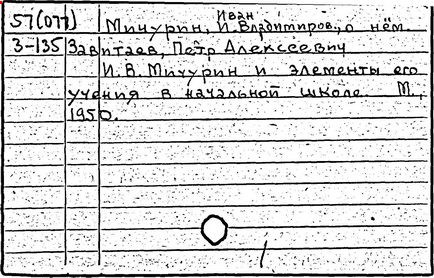 57(077) Мичурин, Иван И. Владимиров., о нём.
3-135 Завитаев, Петр Алексеевич
И. В. Мичурин и элементы его
учения в начальной школе. М.,
1950.